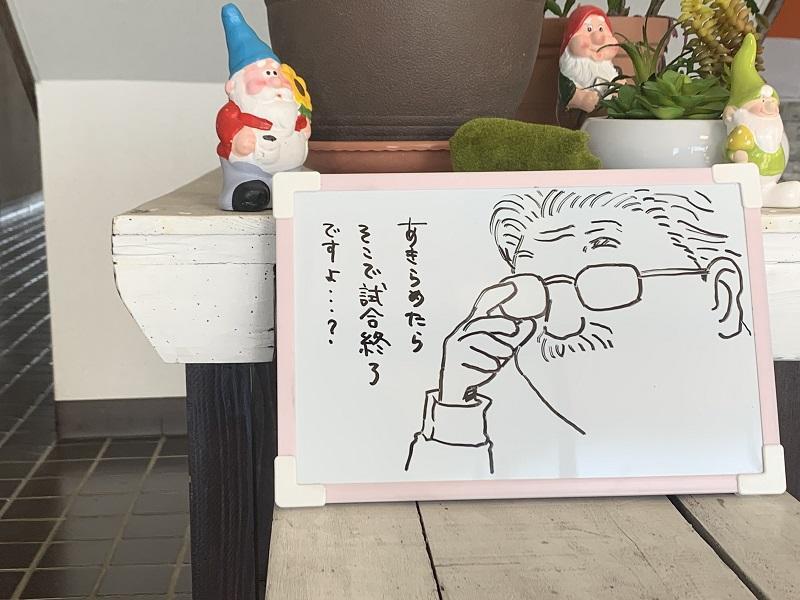 あきらめたら
そこで試合終了
ですよ...?